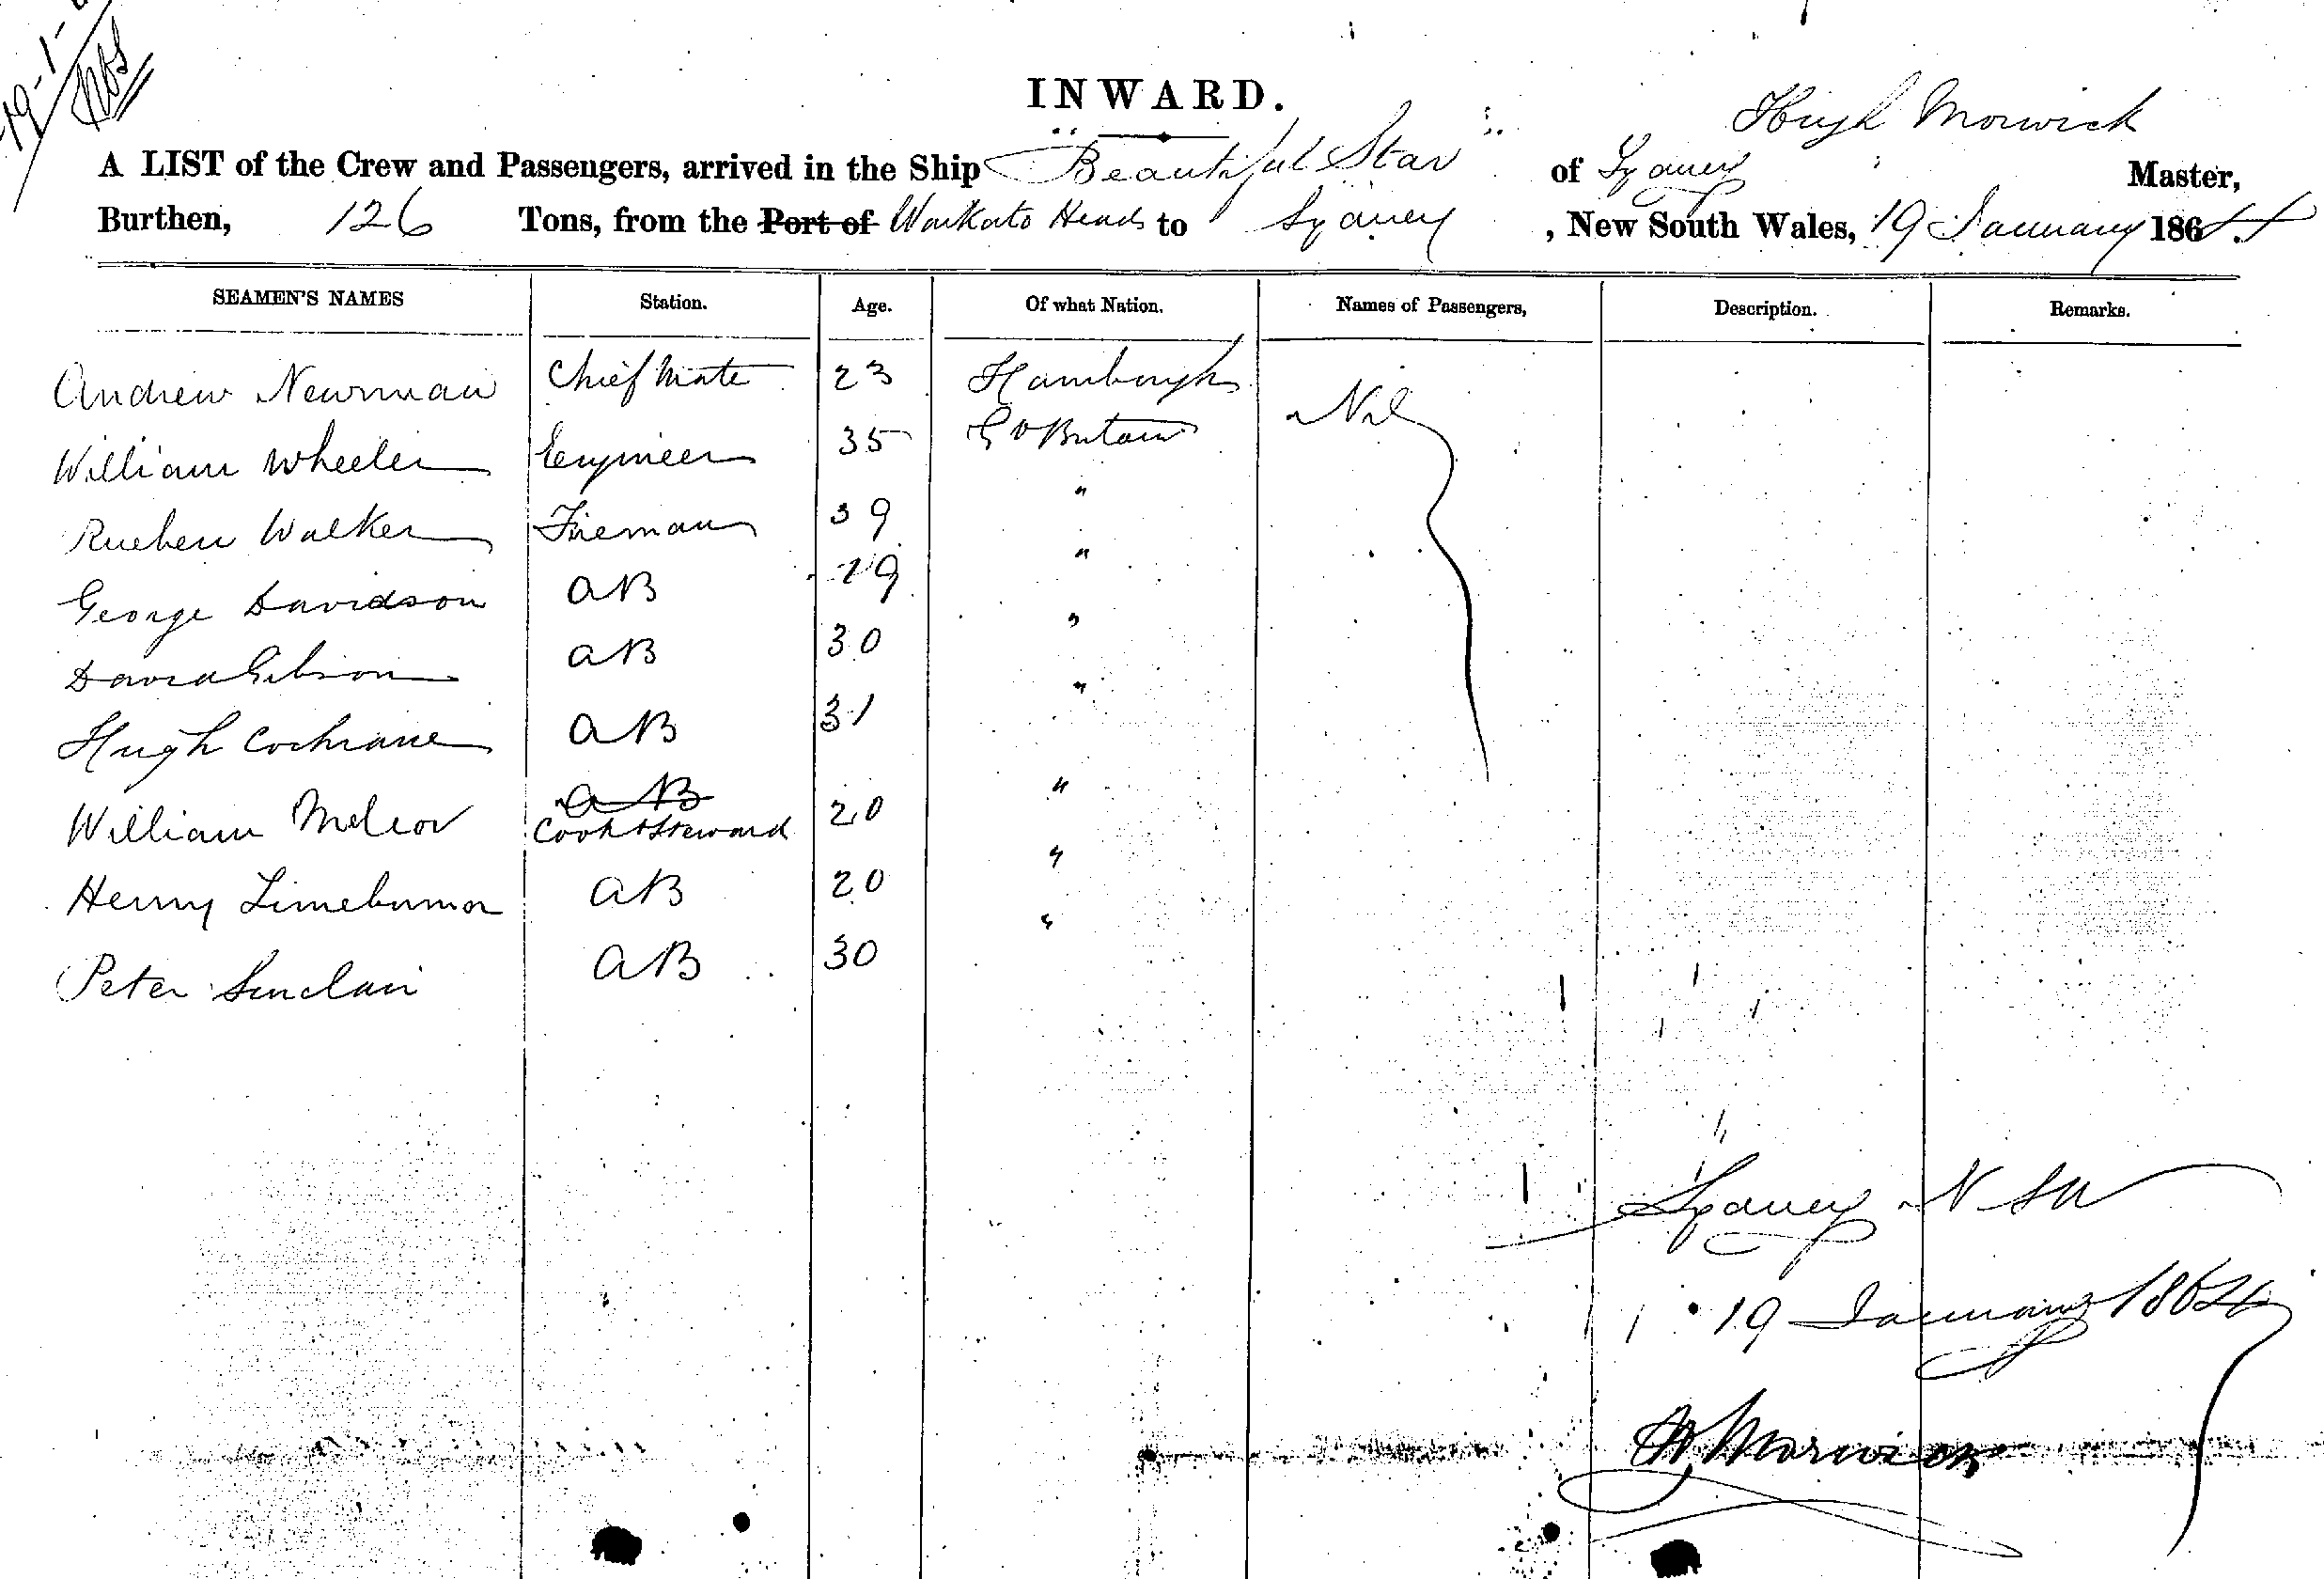 19-1-
INWARD.
Hugh Morwick
A LIST of the Crew and Passengers, arrived in the Ship Beautiful Star of Sydney Master,
Burthen, 126 Tons, from the Port of Waikato Heads to Sydney , New South Wales, 19 January 1864
SEAMEN'S NAMES Station. Age. Of what Nation. Names of Passengers, Description. Remarks.
Andrew Newman Chief Mate 23 Hamburgh Nil
William Wheeler Engineer 35 Gt Britain
Rueben Walker Fireman 39 "
George Davidson AB 29 "
David Gibson AB 30 "
Hugh Cochrane AB 31 "
William AB Cook & Steward 20 "
Henry Limeburner AB 20 "
Peter Sinclair AB 30 "
Sydney NSW
19 January 1864
H Morwick